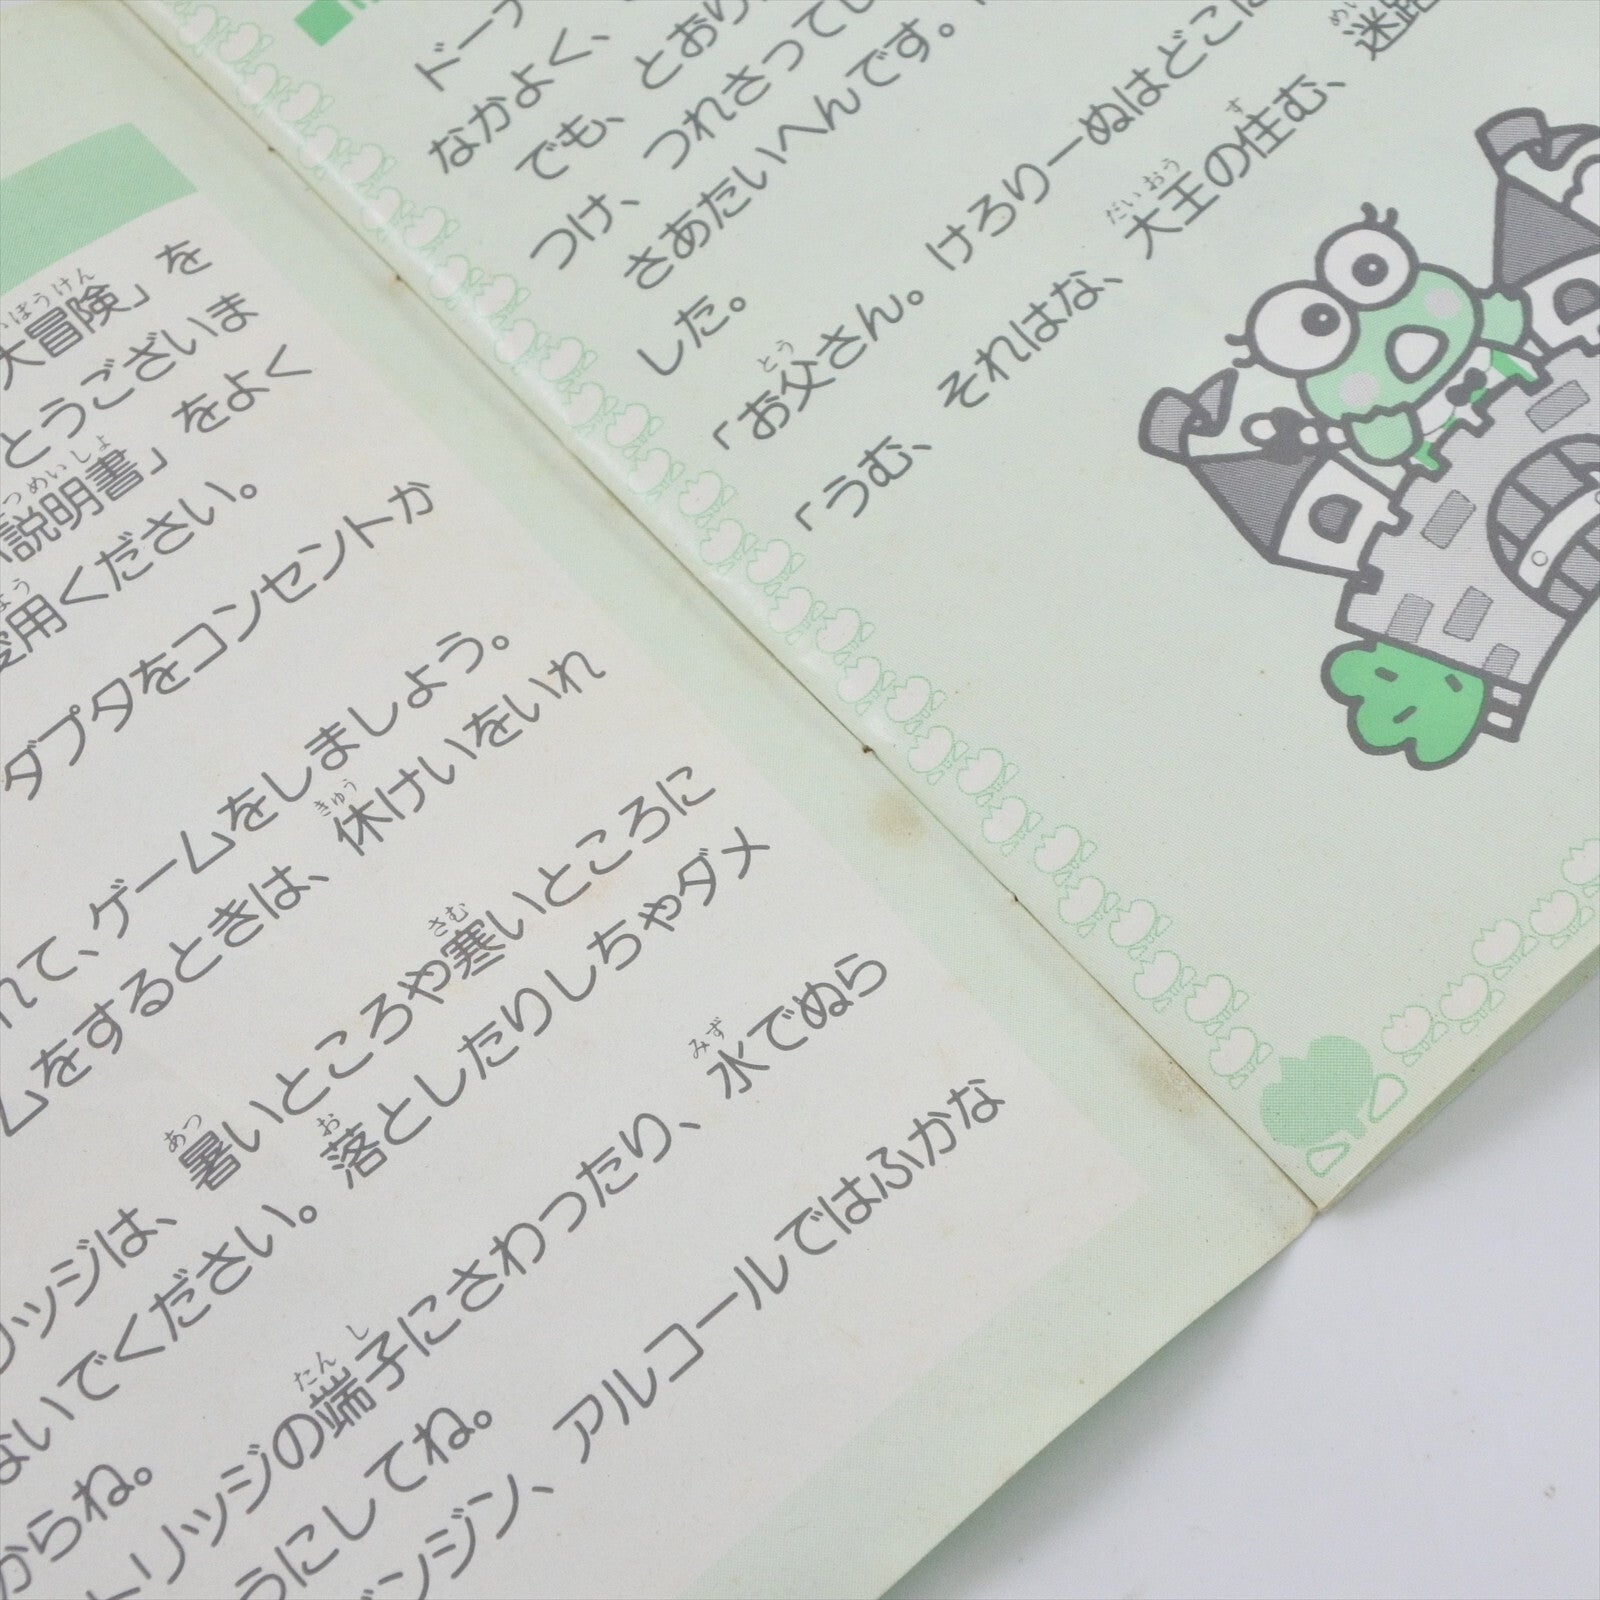 大冒険」を
とうございま
説明書」をよく
愛用ください。
ダプタをコンセントか
れて、ゲームをしましょう。
ムをするときは、休けいをいれ
リッジは、暑いところや寒いところに
ないでください。落としたりしちゃダメ
からね。
トリッジの端子にさわったり、水でぬら
うにしてね。
ンジン、アルコールではふかな
ドーナ
なかよく、
でも、とおり
つけ、つれさってし
さあたいへんです。
した。
「お父さん。けろりーぬはどこに
「うむ、それはな、大王の住む、迷路